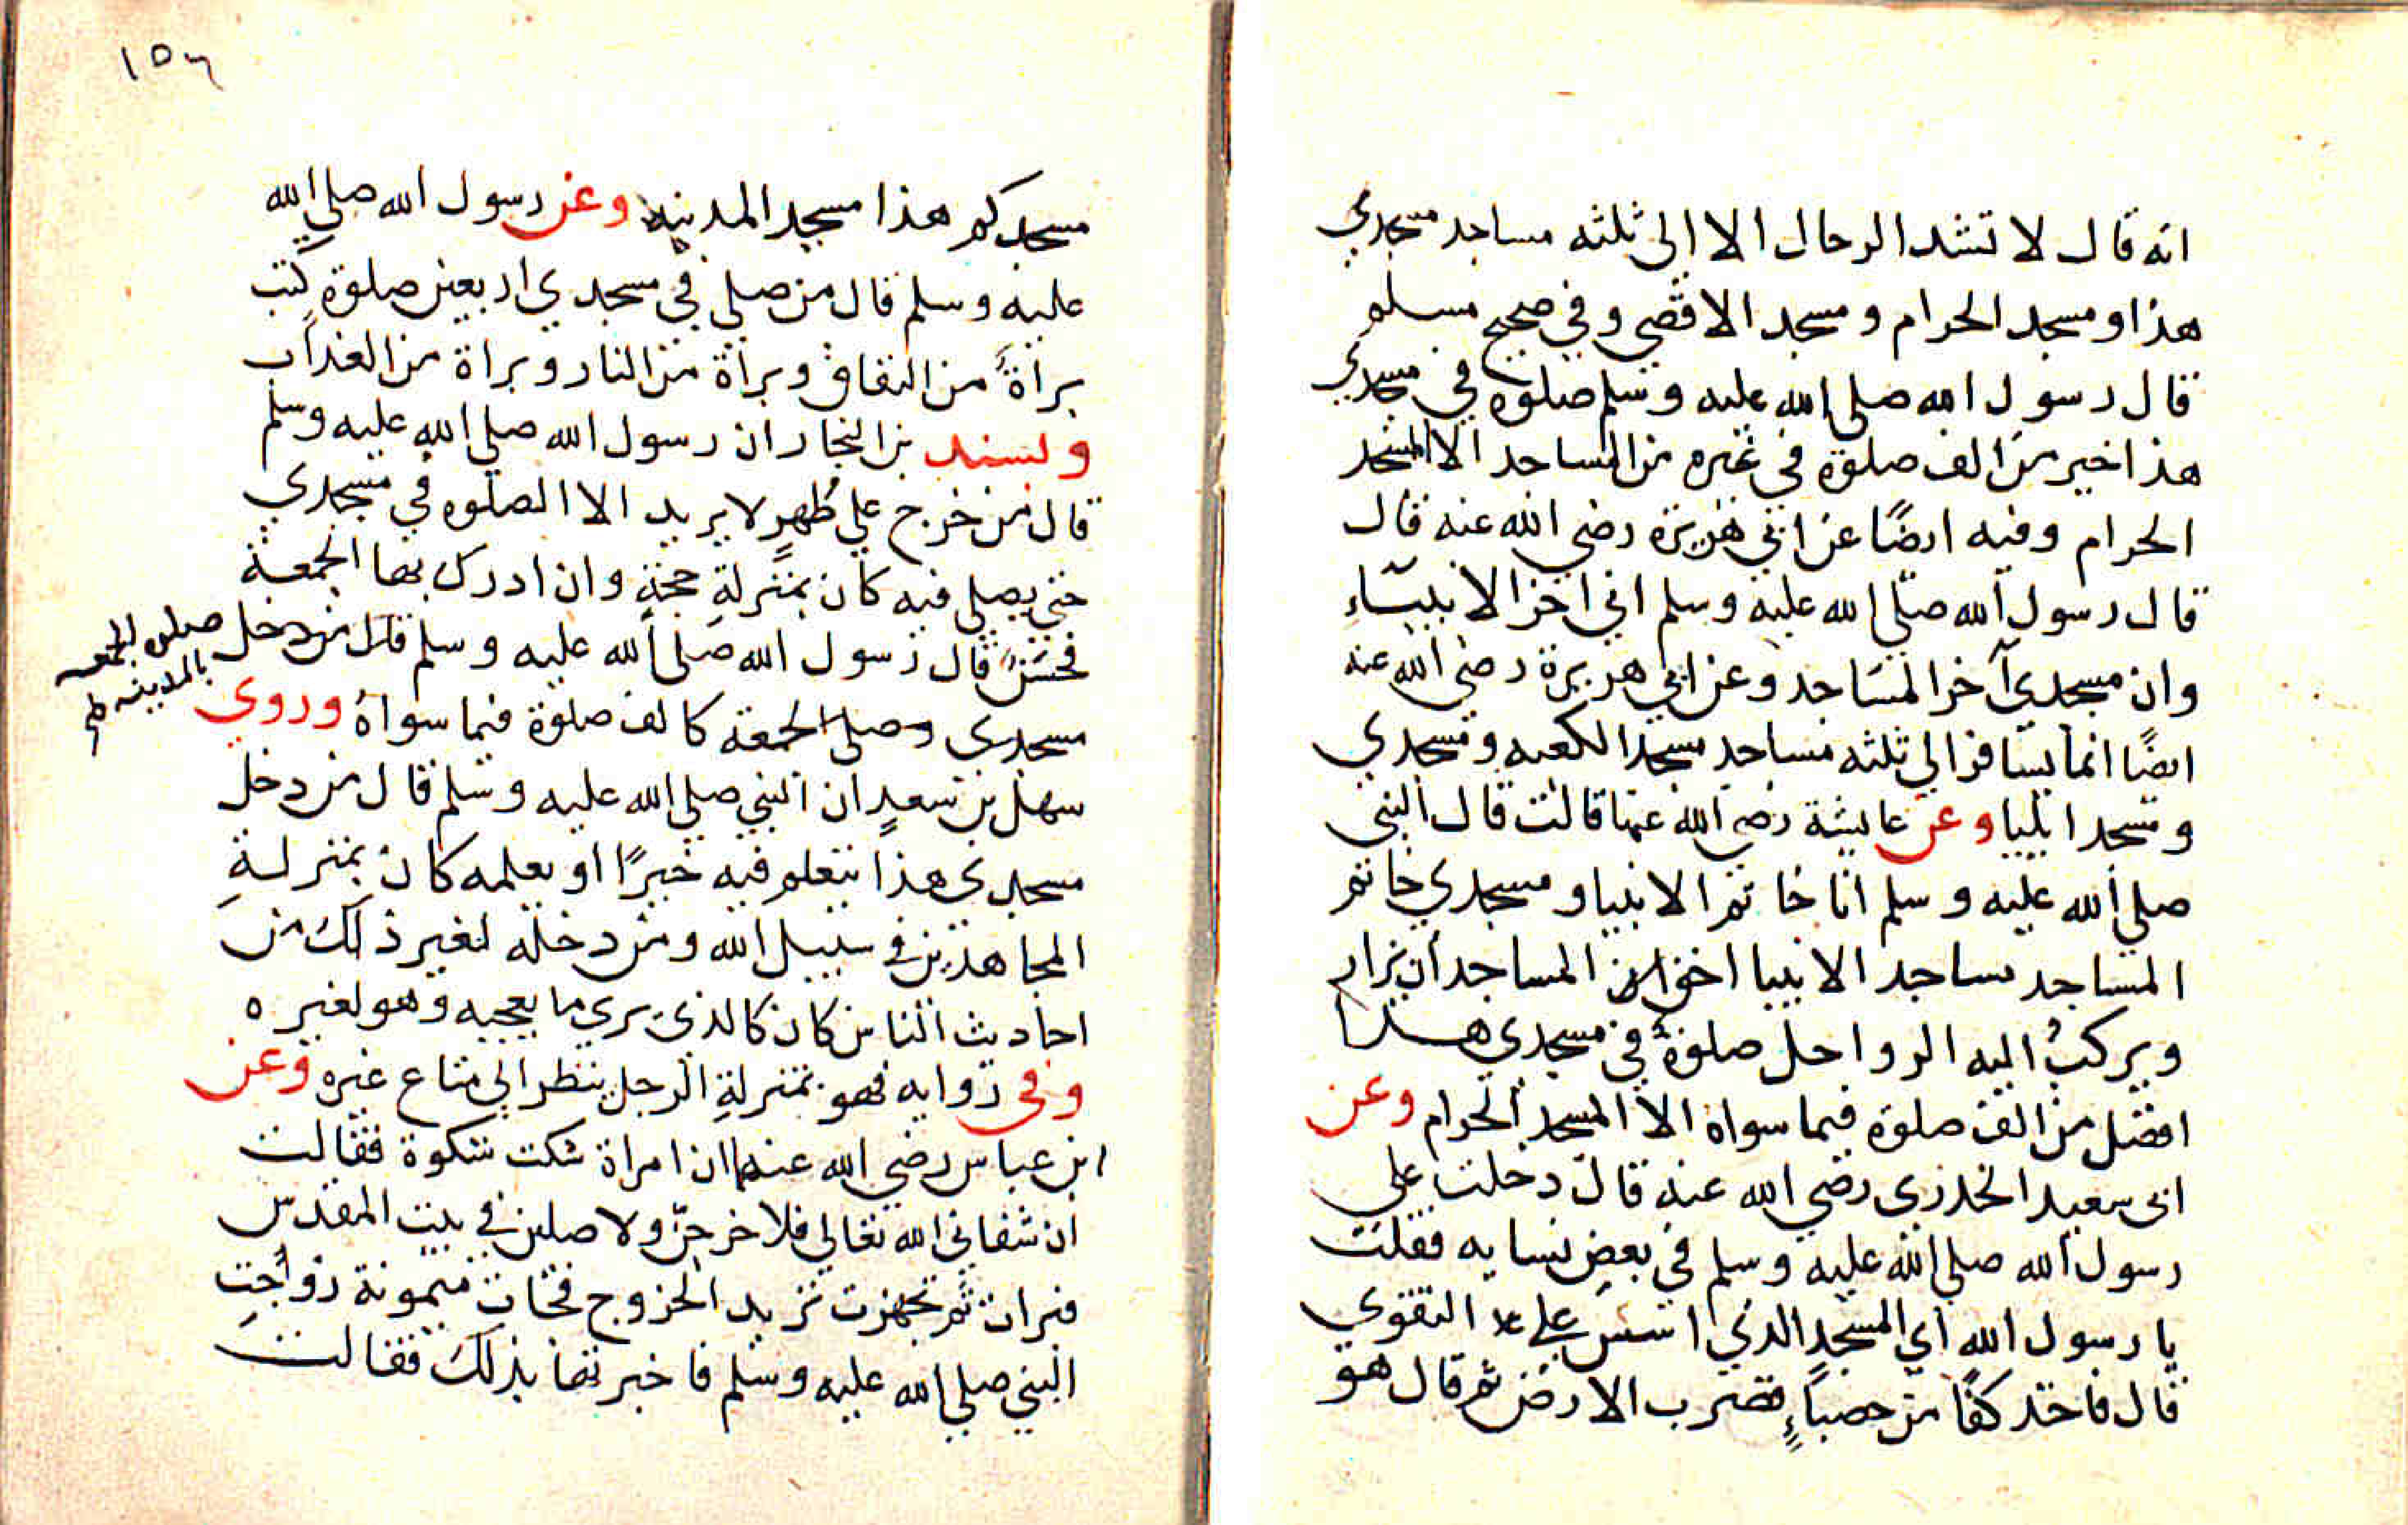 انه قال لا تشد الرحال الا الى ثلثه مساجد مسجدي
هذا ومسجد الحرام ومسجد الاقصى وفي صحيح مسلم
قال رسول الله صلى الله عليه وسلم صلوة في مسجدي
هذا خير من الف صلوة في غيره من المساجد الا المسجد
الحرام وفيه ايضًا عن ابي هريرة رضي الله عنه قال
قال رسول الله صلي الله عليه وسلم اني اخر الانبيآء
وان مسجدي آخر المساجد وعن ابي هريرة رضي الله عنه
ايضًا انما يسافر الي ثلثه مساجد مسجد الكعبه ومسجدي
ومسجد ايليا وعن عايشة رضي الله عنها قالت قال النبي
صلي الله عليه وسلم انا خاتم الانبيا ومسجدي خاتم
المساجد مساجد الانبيا احق المساجد ان يزار
ويركبُ اليه الرواحل صلوةٌ في مسجدي هذا
افضل من الف صلوة فيما سواه الا المسجد الحرام وعن
ابى سعيد الخدري رضي الله عنه قال دخلت علي
رسول الله صلي الله عليه وسلم في بعضِ نسايه فقلت
يا رسول الله اي المسجد الذي اسس علي التقوي
قال فاخذ كفًا من حصباءٍ فضرب الارض ثم قال هو
١٥٦
مسجدكم هذا مسجد المدينه وعن رسول الله صلي الله
عليه وسلم قال من صلي في مسجدي اربعين صلوة كتب
براةً من النفاق وبراة من النار وبراة من العذاب
وبسند بن النجار ان رسول الله صلي الله عليه وسلم
قال من خرج علي طُهرٍ لا يريد الا الصلوه في مسجدي
حتي يصلي فيه كان بمنزلةِ حجةٍ وان ادرك بها الجمعة
فحسنٌ قال رسول الله صلي الله عليه وسلم قال من دخل
صلوه الجمعه
بالمدينه
مسجدى وصلى الجمعة كالف صلوة فيما سواهُ وروي
سهل بن سعدٍ ان النبي صلي الله عليه وسلم قال من دخل
مسجدى هذا يتعلم فيه خيرًا او يعلمه كان بمنزلةِ
المجاهدين في سبيل الله ومن دخله لغير ذلك من
احاديث الناس كان كالذي يري ما يعجبه وهو لغيره
وفى رواية فهو بمنزلةِ الرجل ينظر الي متاع غيره وعن
ابن عباس رضي الله عنهما ان امراة شكت شكوة فقالت
ان شفاني الله تعالي فلاخرجنّ ولاصلين في بيت المقدس
فبرات ثم تجهزت تريد الخروج فجات ميمونة زواجت
النبي صلي الله عليه وسلم فاخبرتها بذلك فقالت